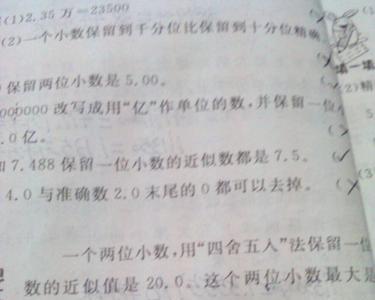 (1)2.35万=23500
(2)一个小数保留到千分位比保留到十分位精确
保留两位小数是 5.00。
000000 改写成用“亿”作单位的数，并保留一位
.0 亿。
7.488 保留一位小数的近似数都是 7.5。
4.0 与准确数 2.0 末尾的 0 都可以去掉。
一个两位小数，用“四舍五入”法保留一位
数的近似值是 20.0。这个两位小数最大是
填一填
(2)精
(3